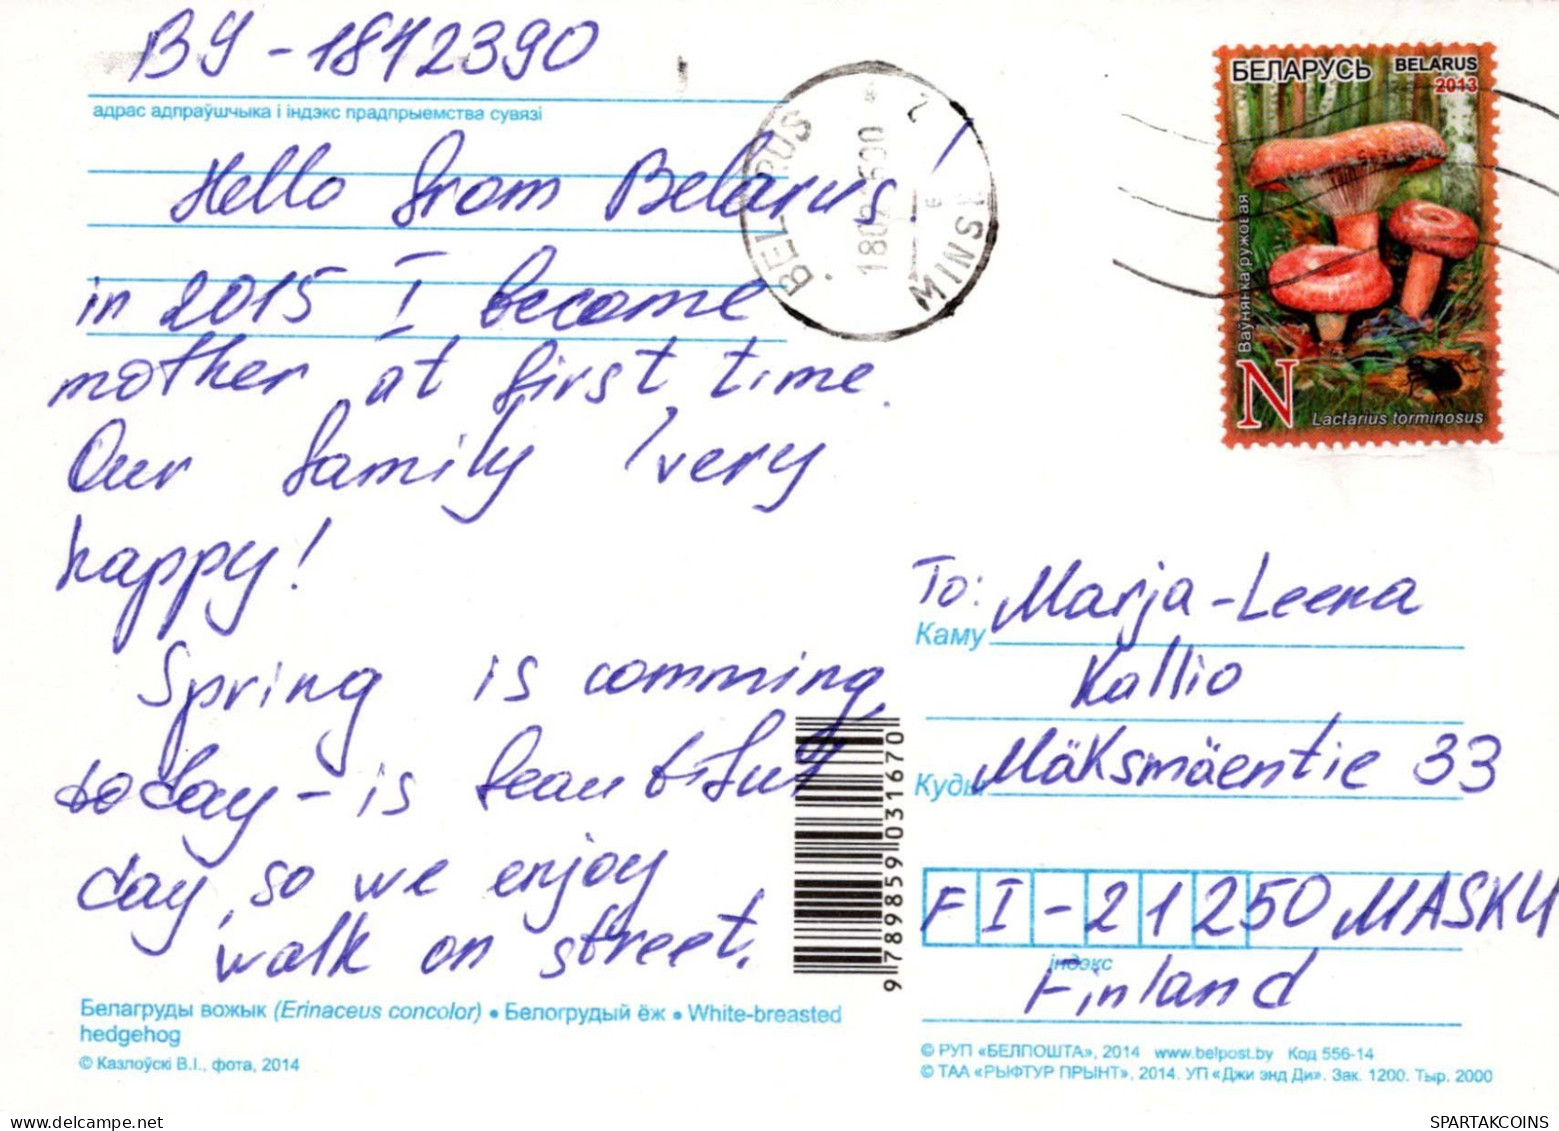 BY-1842390
адрас адпраўшчыка і індэкс прадпрыемства сувязі
Hello from Belarus!
in 2015 I become
mother at first time.
Our family very
happy!
Spring is comming,
today - is beautiful
day, so we enjoy
walk on street.
Белагруды вожык (Erinaceus concolor) • Белогрудый ёж • White-breasted
hedgehog
© Казлоўскі В.І., фота, 2014
BELARUS
MINSK
БЕЛАРУСЬ BELARUS
2013
Ваўнянка ружовая
N
Lactarius torminosus
To: Marja-Leena
Каму
Kallio
Mäksmäentie 33
Куды
FI-21250 MASKU
індэкс
Finland
9 789859 031670
© РУП «БЕЛПОШТА», 2014 www.belpost.by Код 556-14
© ТАА «РЫФТУР ПРЫНТ», 2014. УП «Джи энд Ди». Зак. 1200. Тыр. 2000
SPARTAKCOINS